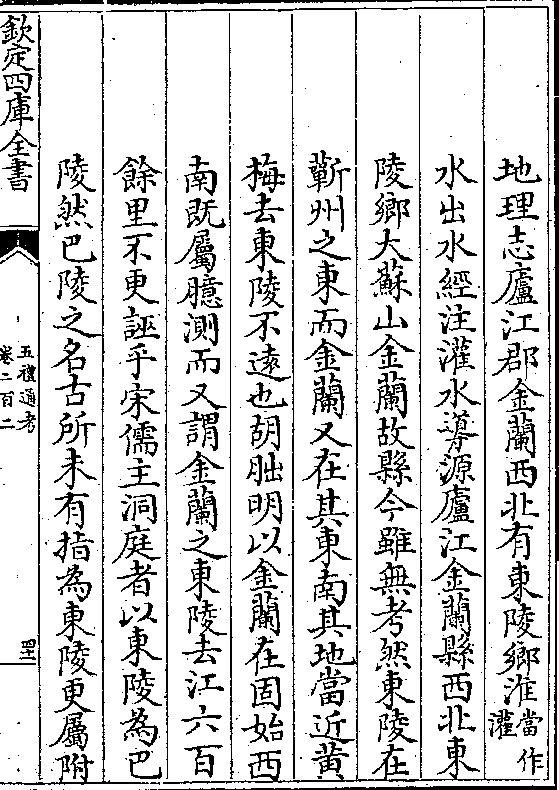 地理志廬江郡金蘭西北有東陵鄉淮當作灌
水出水經注灌水導源廬江金蘭縣西北東
陵鄉大蘇山金蘭故縣今雖無考然東陵在
蘄州之東而金蘭又在其東南其地當近黄
梅去東陵不逺也胡朏明以金蘭在固始西
南既屬臆測而又謂金蘭之東陵去江六百
餘里不更誣乎宋儒主洞庭者以東陵為巴
陵然巴陵之名古所未有指為東陵更屬附
欽定四庫全書
五禮通考
卷二百二